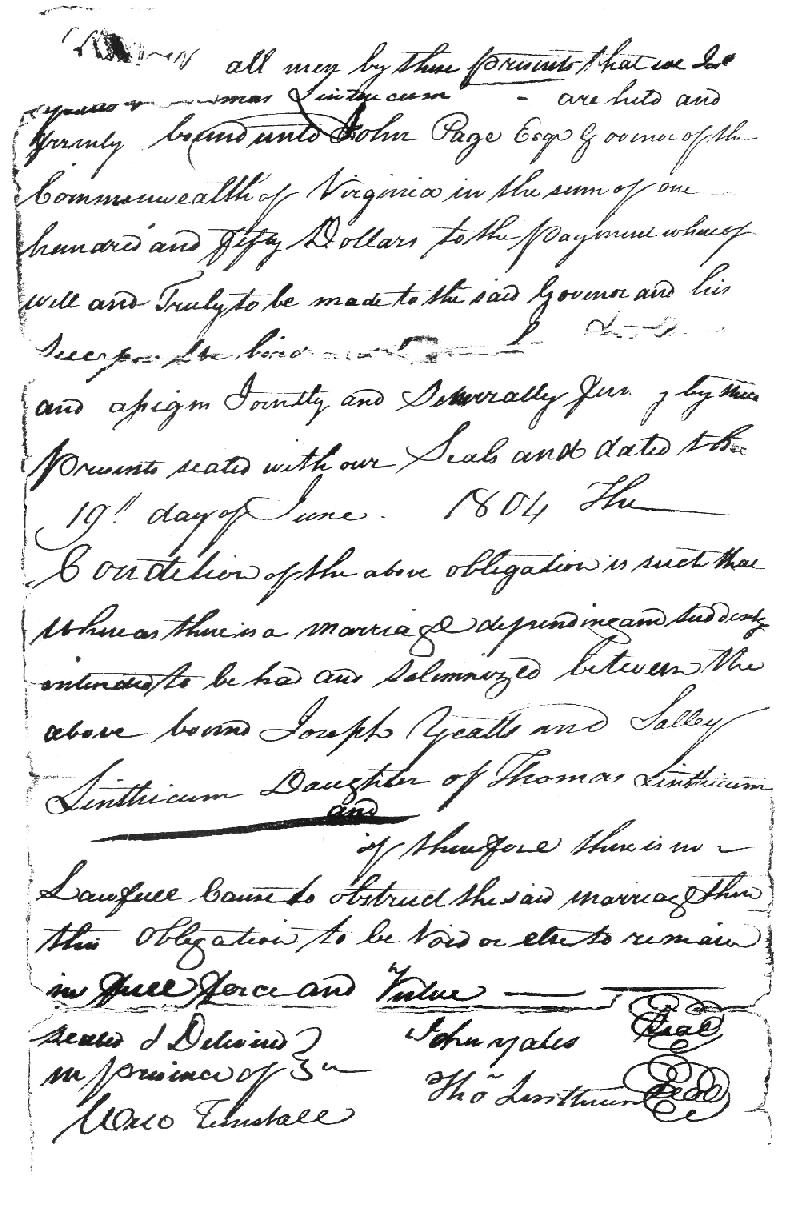 all men by these presents that we
Linthicum - are held and
firmly bound unto John Page Esqr Governor of the
Commonwealth of Virginia in the sum of one
hundred and fifty Dollars to the payment whereof
will and Truly to be made to the said Govenor and his
bind
and assigns Jointly and Severally by these
Presents sealed with our Seals and dated
19th day of June 1804 The
Condition of the above obligation is such that
whereas there is a marriage depending and suddenly
intended to be had and Solemnized between the
above bound Joseph Yeatts and Salley
Linthicum Daughter of Thomas Linthicum
and
if therefore there is no
Lawfull Cause to obstruct the said marriage then
this Obligation to be Void or else to remain
in full force and Virtue
sealed & Delivered John yates Seal
in presence of Thos Linthicum Seal
Will Tunstall